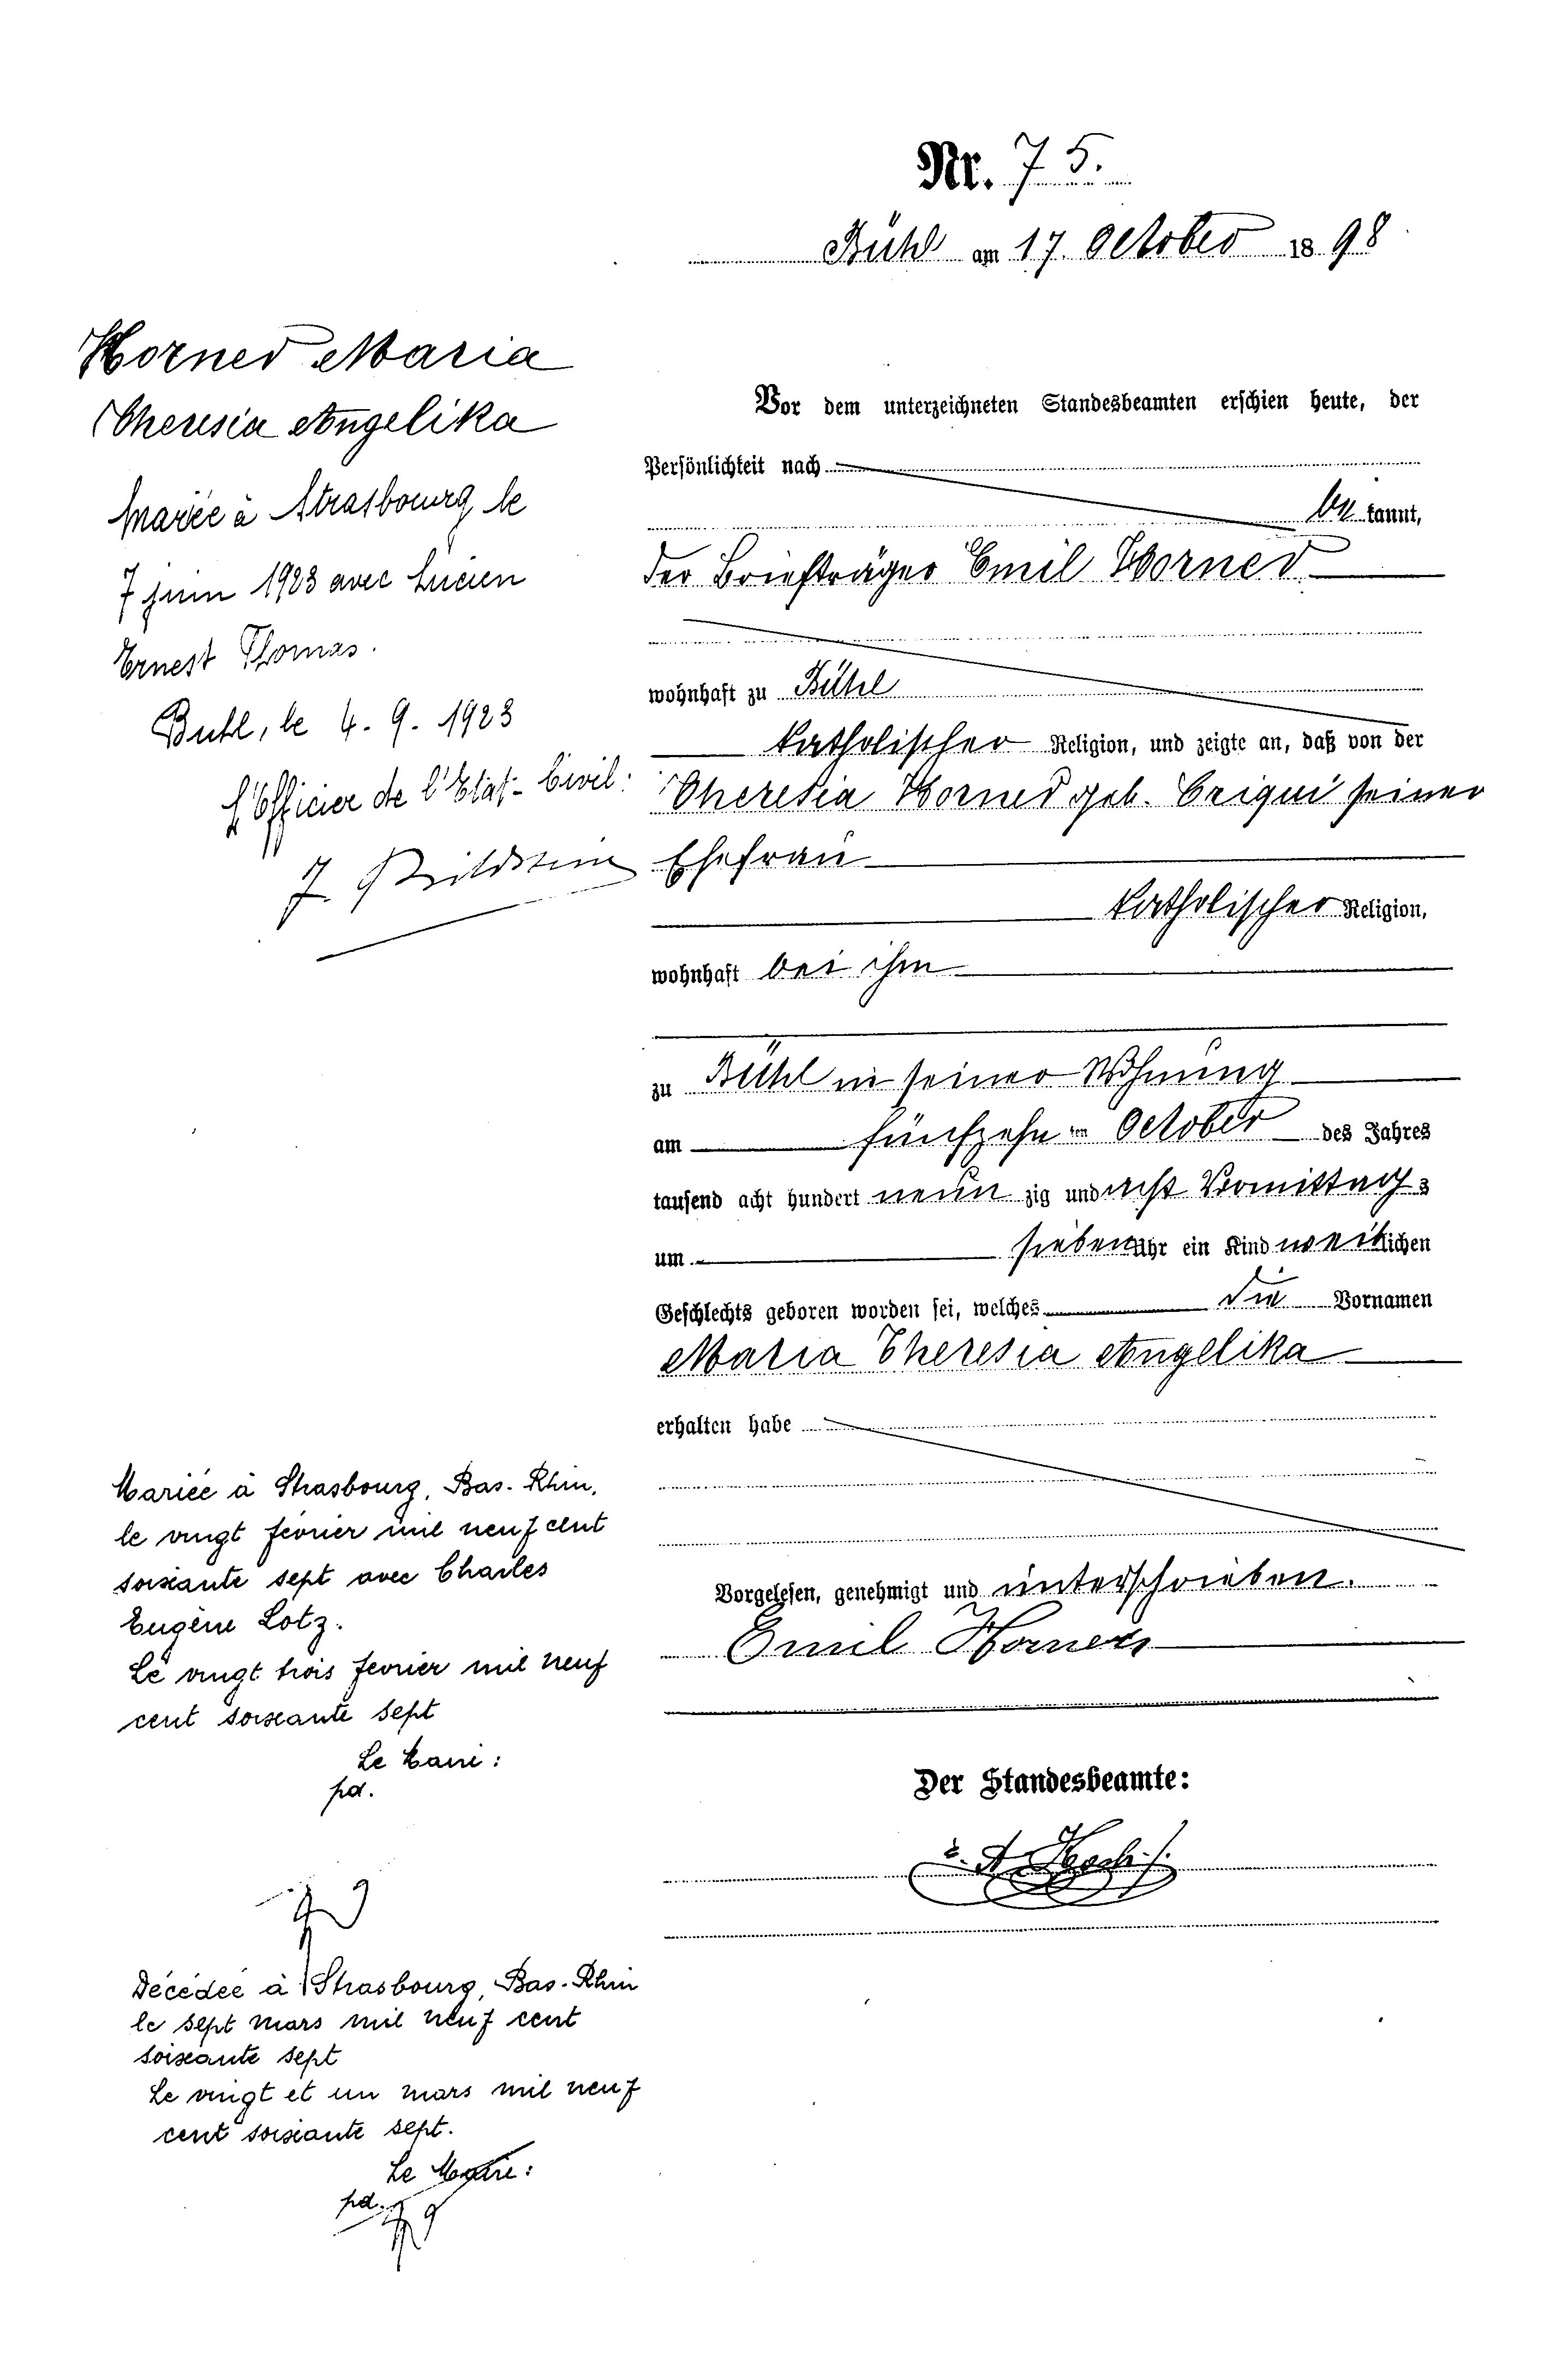 Nr. 75.
Bühl am 17. October 1898
Horner Maria
Theresia Angelika
Mariée à Strasbourg le
7 juin 1923 avec Lucien
Ernest Thomas.
Buhl, le 4. 9. 1923
L'Officier de l'Etat-Civil:
Vor dem unterzeichneten Standesbeamten erschien heute, der
Persönlichkeit nach
be kannt,
der Briefträger Emil Horner
wohnhaft zu Bühl
katholischer Religion, und zeigte an, daß von der
Theresia Horner geb. Criqui seiner
Ehefrau
katholischer Religion,
wohnhaft bei ihm
zu Bühl in seiner Wohnung
am fünfzehnten October des Jahres
tausend acht hundert neun zig und acht Vormittags
um sieben Uhr ein Kind weiblichen
Geschlechts geboren worden sei, welches die Vornamen
Maria Theresia Angelika
erhalten habe
Vorgelesen, genehmigt und unterschrieben.
Emil Horner
Der Standesbeamte:
A Koch
Mariée à Strasbourg, Bas-Rhin,
le vingt février mil neuf cent
soixante sept avec Charles
Eugène Lotz.
Le vingt trois février mil neuf
cent soixante sept
Le Maire:
pd.
Décédée à Strasbourg, Bas-Rhin
le sept mars mil neuf cent
soixante sept
Le vingt et un mars mil neuf
cent soixante sept.
Le Maire:
pd.